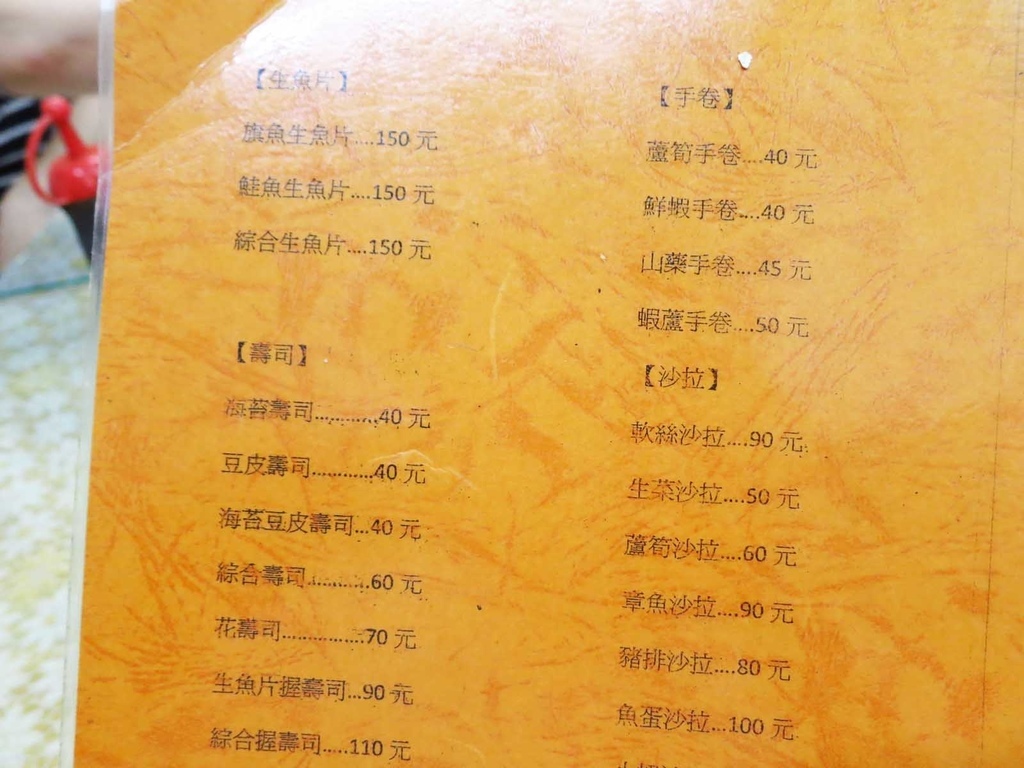 【生魚片】
旗魚生魚片....150 元
鮭魚生魚片....150 元
綜合生魚片....150 元
【壽司】
海苔壽司............40 元
豆皮壽司............40 元
海苔豆皮壽司...40 元
綜合壽司............60 元
花壽司................70 元
生魚片握壽司...90 元
綜合握壽司.....110 元
【手卷】
蘆筍手卷....40 元
鮮蝦手卷....40 元
山藥手卷....45 元
蝦蘆手卷....50 元
【沙拉】
軟絲沙拉....90 元
生菜沙拉....50 元
蘆筍沙拉....60 元
章魚沙拉....90 元
豬排沙拉....80 元
魚蛋沙拉...100 元